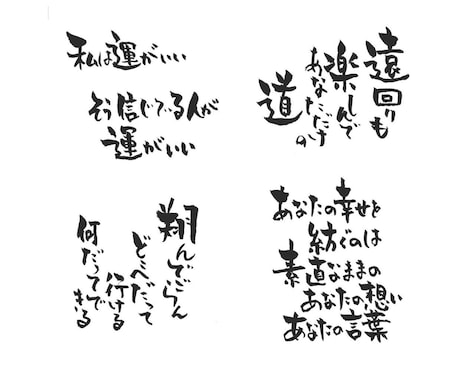 私は運がいい
そう信じている人が
運がいい
遠回りも
楽しんで
あなただけの
道
翔んでごらん
どこへだって
行ける
何だってできる
あなたの幸せを
紡ぐのは
素直なままの
あなたの想い
あなたの言葉